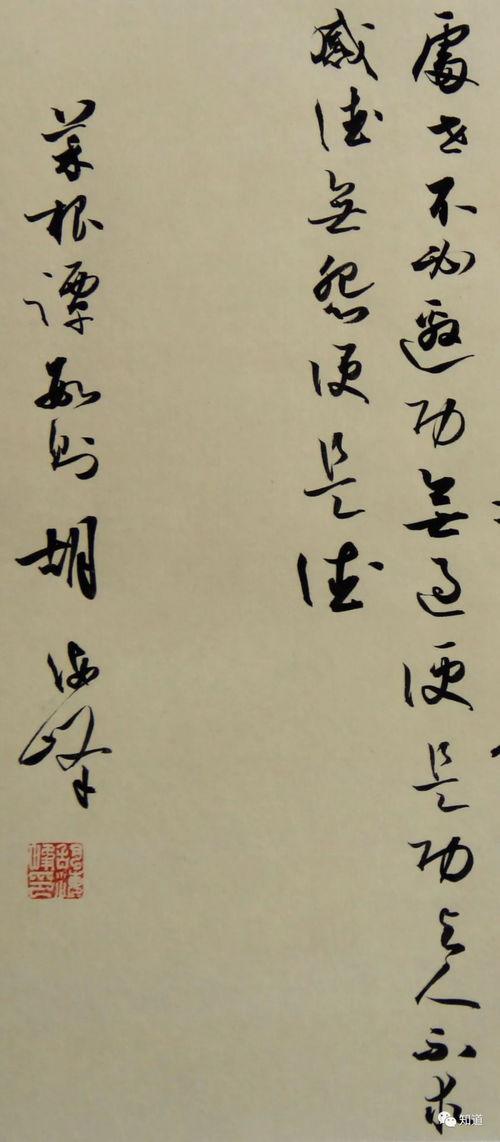 處世不必邀功無過便是功與人不求
感德無怨便是德
菜根譚數則 胡海峰
知道